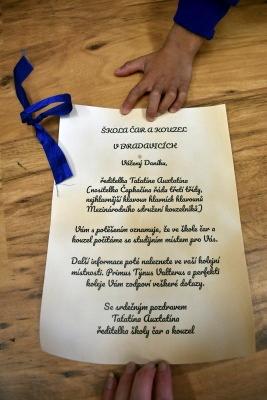 ŠKOLA ČAR A KOUZEL
V BRADAVICÍCH
Vážený Daníku,
ředitelka Taťatína Auxtatína
(nositelka Čephačína řádu třetí třídy,
nejhlavnější hlavoun hlavních hlavounů
Mezinárodního sdružení kouzelníků)
Vám s potěšením oznamuje, že ve škole čar a
kouzel počítáme se studijním místem pro Vás.
Další informace poté naleznete ve vaší kolejní
místnosti. Primus Týnus Valterus a perfekti
koleje Vám zodpoví veškeré dotazy.
Se srdečným pozdravem
Taťatína Auxtatína
ředitelka školy čar a kouzel